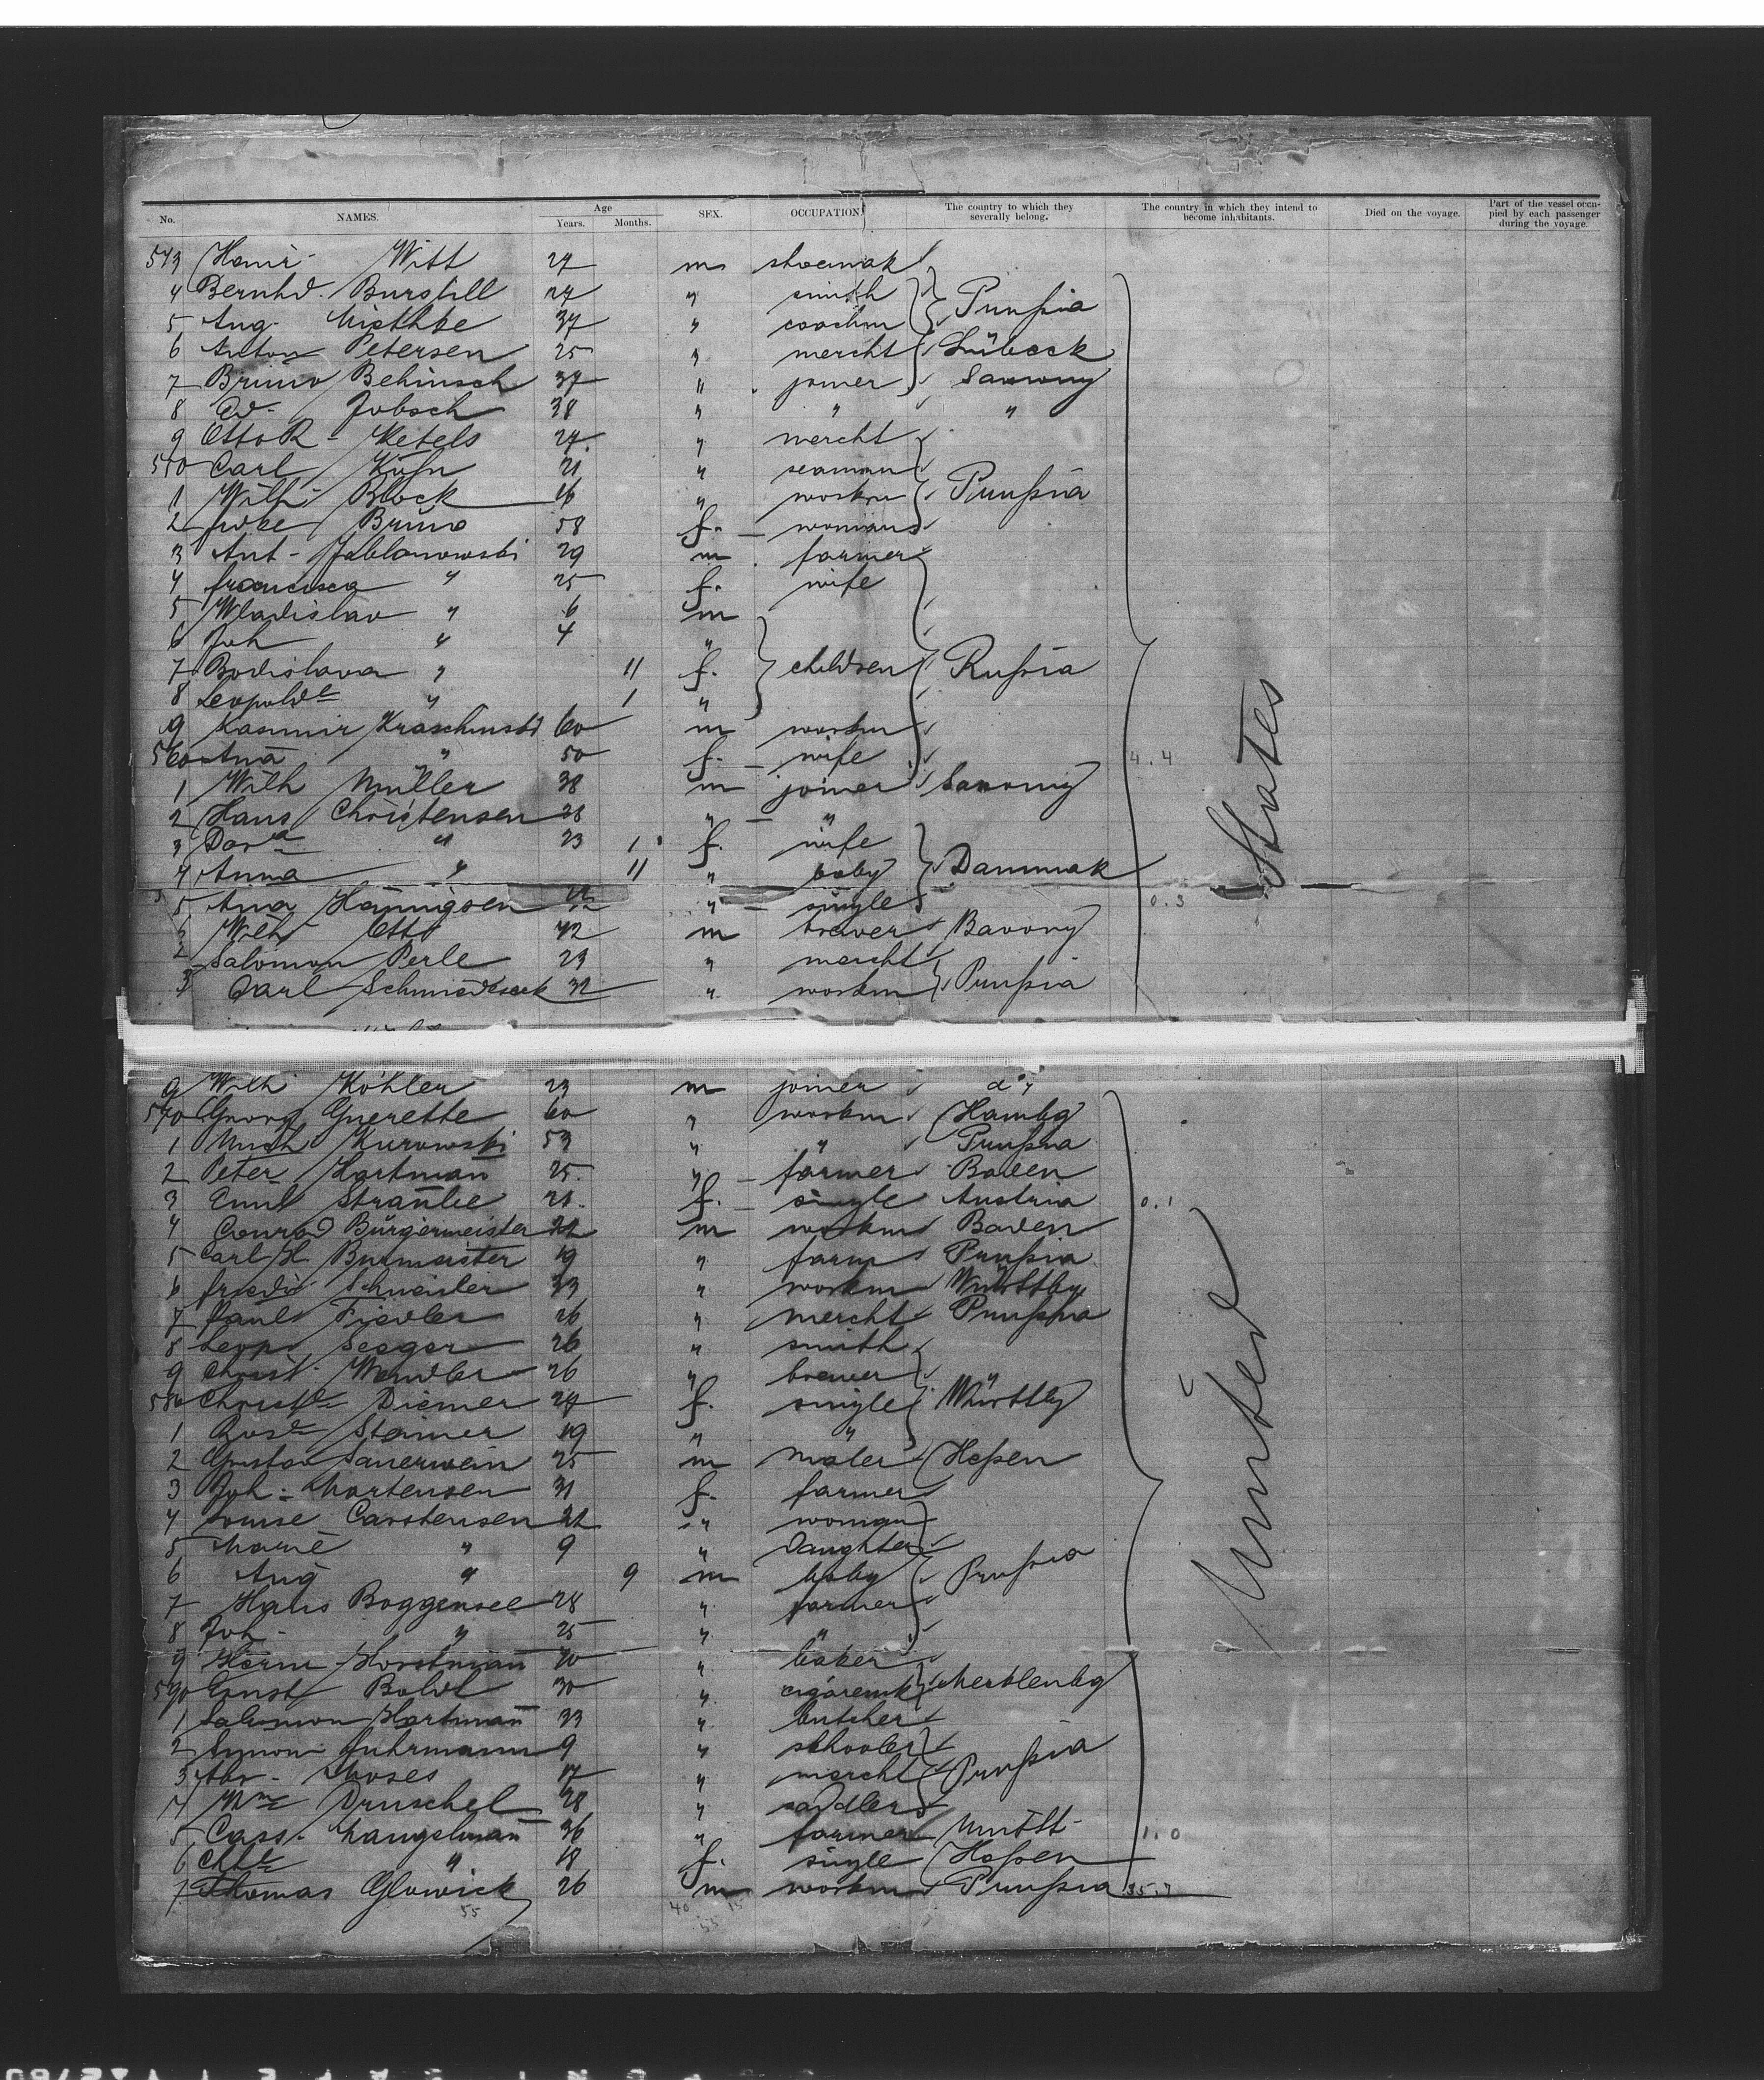 No. NAMES. Age Years. Months. SEX. OCCUPATION. The country to which they severally belong. The country in which they intend to become inhabitants. Died on the voyage. Part of the vessel occupied by each passenger during the voyage.
543 Heinr. Witt 27 m shoemak
4 Bernhd. Burstill 27 " smith
5 Aug. Miethke 37 " coachm Prussia
6 Anton Petersen 25 " mercht Lübeck
7 Bruno Behinsch 37 " joiner Saxony
8 Ed. Jobsch 38 " " "
9 Otto R. Ketels 27 " mercht
550 Carl Kühn 21 " seaman
1 Wilh. Block 16 " workm Prussia
2 Bruno 58 f. woman
3 Ant. Jablonowski 29 m farmer
4 Francisca " 25 f. wife
5 Wladislav " 6 m
6 Joh " 4 "
7 Bodislava " 11 f. children Russia
8 Leopolde " 1 "
9 Kasimir Kraschinski 60 m workm
560 Ana " 50 f. wife 4.4
1 Wilh Müller 38 m joiner Saxony
2 Hans Christensen 28 " "
3 Dora " 23 1 f. wife
4 Anna " 11 " baby Danmak
5 Ana Hannigsen " single 0.3
6 Wilh. Otto 42 m brewer Saxony
Salomon Perle 23 " mercht
Carl Schmidseck 32 " workm Prussia
States
9 Wilh Köhler 23 m joiner do
570 Georg Guerette 60 " workm Hambg
1 Mich Kurowski 53 " " Prussia
2 Peter Hartmañ 25 " farmer Baden
3 Emil 21 f. single Austria 0.1
4 Conrad Bürgermeister 22 m workm Baden
5 Carl H. Burmeister 19 " farm Prussia
6 Friedr. 33 " workm Württbg
7 Paul Fiedler 26 " mercht Prussia
8 Leop. Seeger 26 " smith
9 Christ. Wendler 26 " brewer
580 Christe Diemer 27 f. single Württbg
1 Rose Steiner 19 " "
2 Gustav Sauerwein 25 m maler Hessen
3 Joh. Martensen 31 f. farmer
4 Louise Carstensen 22 " woman
5 Marie " 9 " Daughter
6 Aug " 9 m baby Prussia
7 Hans Boggensee 28 " farmer
8 Joh. " 25 " "
9 Herm. Horstmañ 40 " baker
590 Ernst Boldt 30 " cigaremk Mecklenbg
1 Salomon Hartmañ 33 " butcher
2 Simon Fuhrmann 9 " schooler
3 Abr. Moses 17 " mercht Prussia
4 Wm Druschel 28 " saddler
5 Cass. Langelmañ 36 " farmer Württ. 1.0
6 " 18 f. single Hessen
7 Thomas Glowick 26 m workm Prussia 35.7
55 40 15
55
United